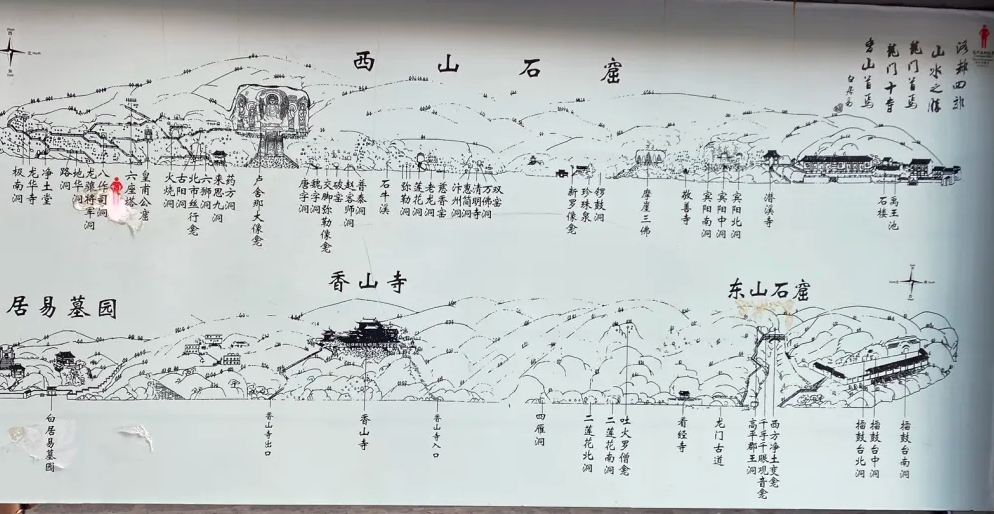 西山石窟
洛都四郊
山水之胜
龙门首焉
龙门十寺
香山首焉
白居易
极南洞
龙华寺
净土堂
路洞
地华洞
龙骧将军洞
八作司洞
六座塔
皇甫公窟
火烧洞
古阳洞
北市丝行龛
六狮洞
来思九洞
药方洞
卢舍那大像龛
唐字洞
魏字洞
交脚弥勒像龛
破窑
赵客师洞
普泰洞
石牛溪
弥勒洞
莲花洞
老龙洞
慈香窑
汴州洞
惠简洞
清明寺
万佛洞
双窑
新罗像龛
珍珠泉
锣鼓洞
摩崖三佛
敬善寺
宾阳南洞
宾阳中洞
宾阳北洞
潜溪寺
石楼
禹王池
居易墓园
香山寺
东山石窟
白居易墓园
香山寺出口
香山寺
香山寺入口
四雁洞
二莲花北洞
二莲花南洞
吐火罗僧龛
看经寺
龙门古道
高平郡王洞
千手千眼观音龛
西方净土变龛
擂鼓台北洞
擂鼓台中洞
擂鼓台南洞